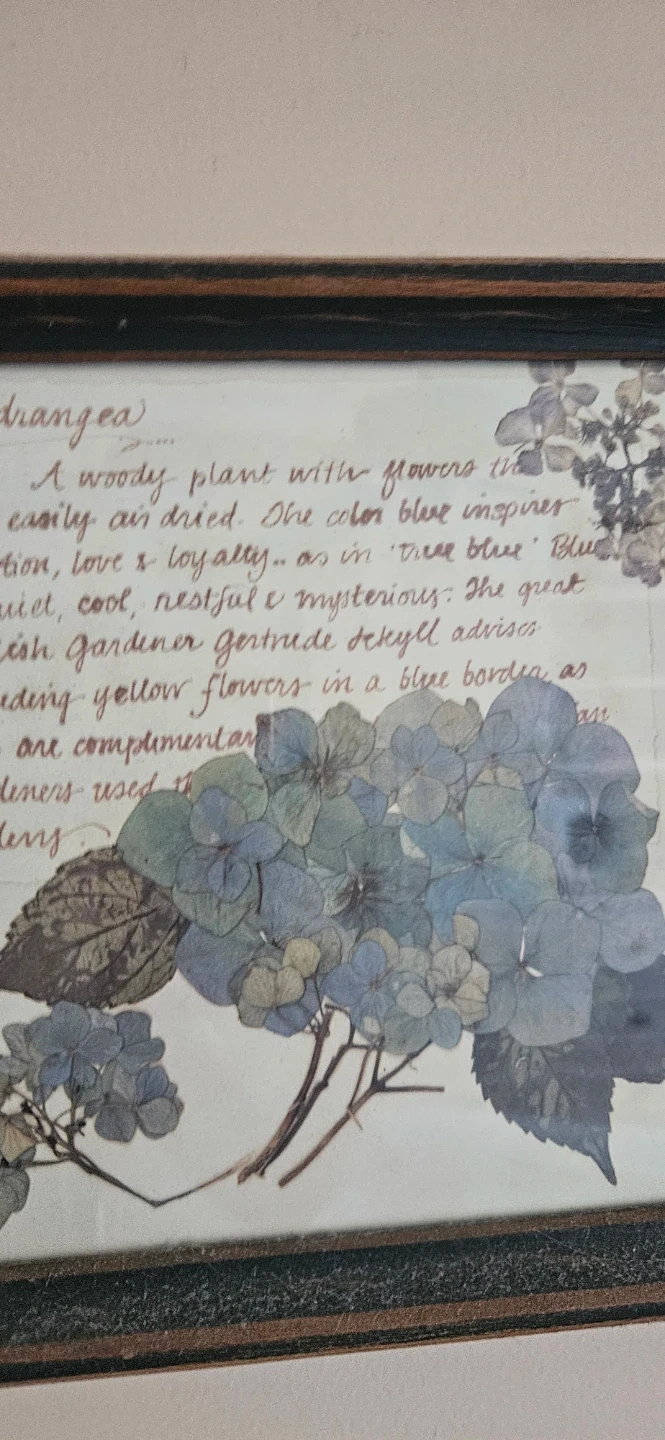 drangea
A woody plant with flowers th
easily air dried. The color blue inspires
tion, love & loyalty.. as in 'true blue' Blue
uiet, cool, restful & mysterious. The great
ish Gardener Gertrude Jekyll advises
eding yellow flowers in a blue border, as
are complimentar an
deners used th
dens.